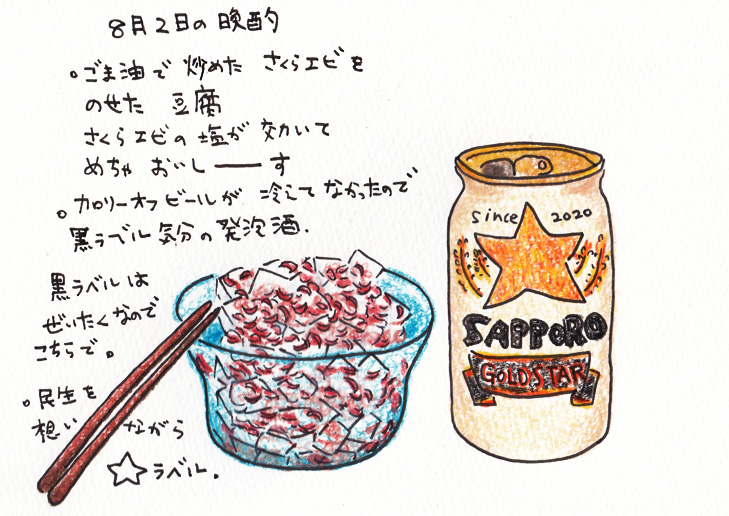 8月2日の晩酌
。ごま油で 炒めた さくらエビを
のせた 豆腐
さくらエビの 塩が 効いて
めちゃ おいしーーす
。カロリーオフビールが 冷えて なかったので
黒ラベル気分の発泡酒.
黒ラベルは
ぜいたくなので
こちらで。
。民生を
想いながら
☆ラベル.
since 2020
SAPPORO
GOLD STAR